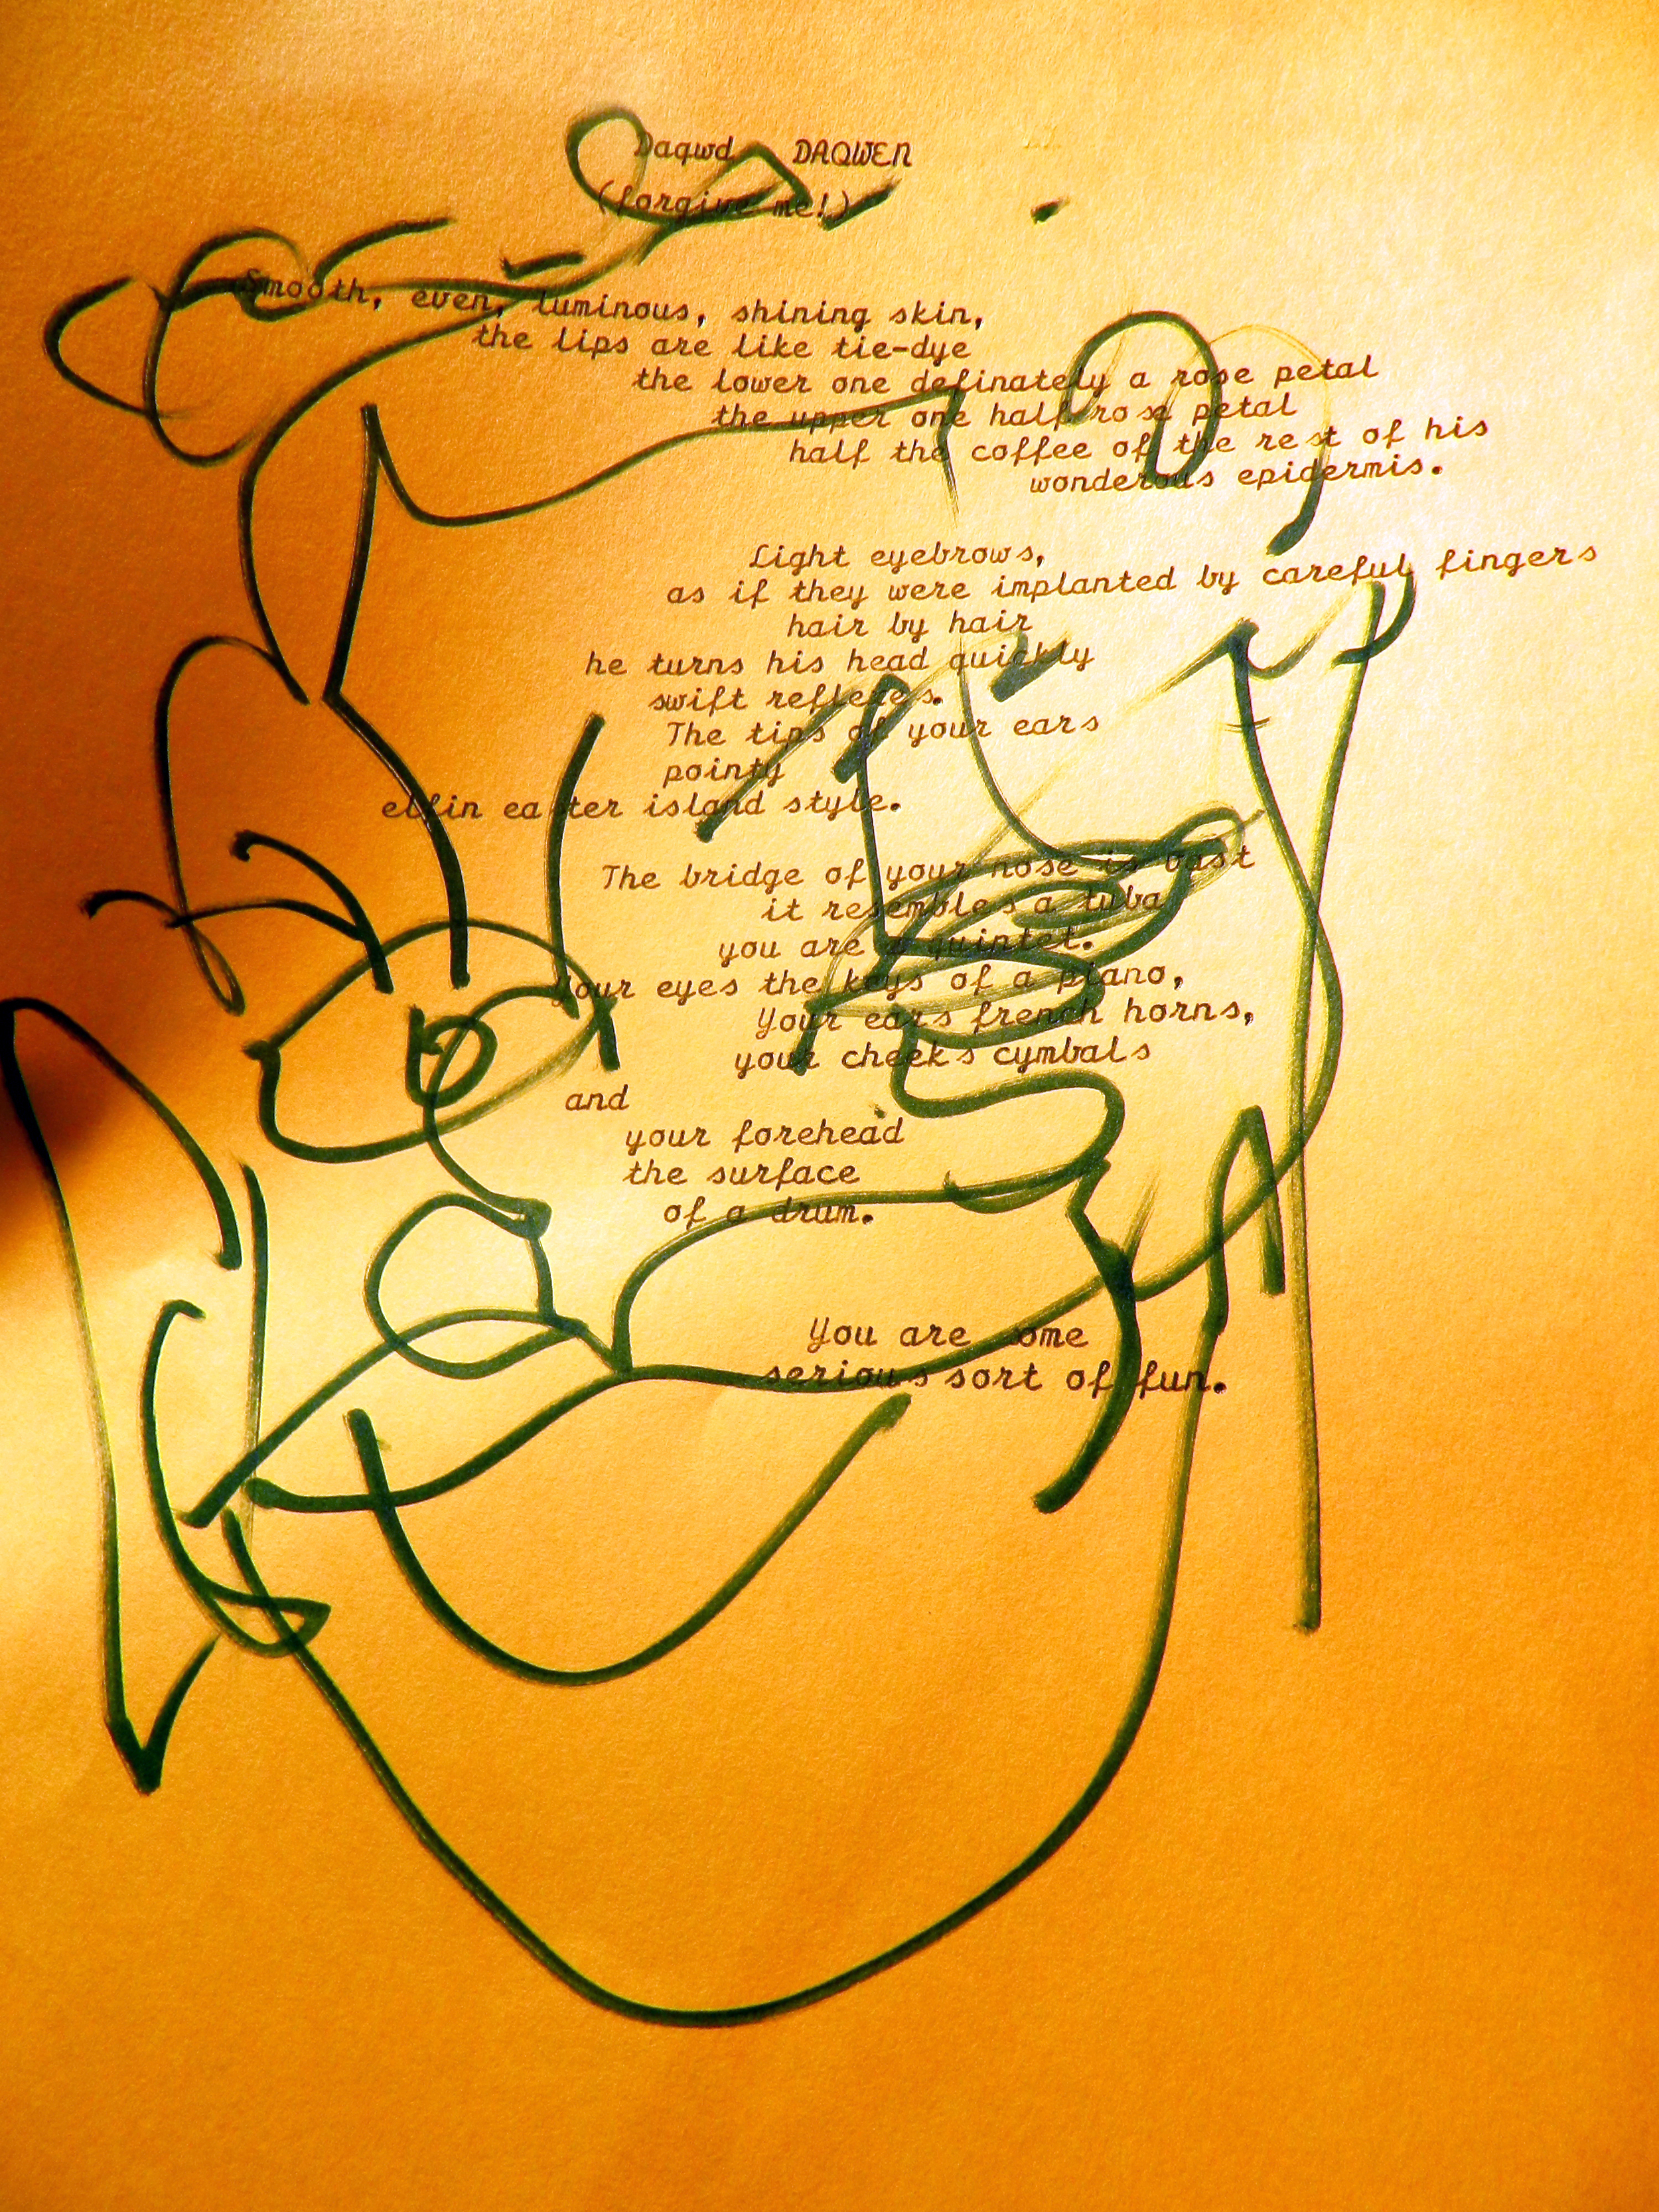 Daqwd DAQWEN
(forgive me!)
Smooth, even, luminous, shining skin,
the lips are like tie-dye
the lower one definately a rose petal
the upper one half rose petal
half the coffee of the rest of his
wonderous epidermis.
Light eyebrows,
as if they were implanted by careful fingers
hair by hair
he turns his head quickly
swift reflexes.
The tips of your ears
pointy
elfin easter island style.
The bridge of your nose is vast
it resembles a tuba
you are a quintet.
Your eyes the keys of a piano,
Your ears french horns,
your cheeks cymbals
and
your forehead
the surface
of a drum.
You are some
serious sort of fun.